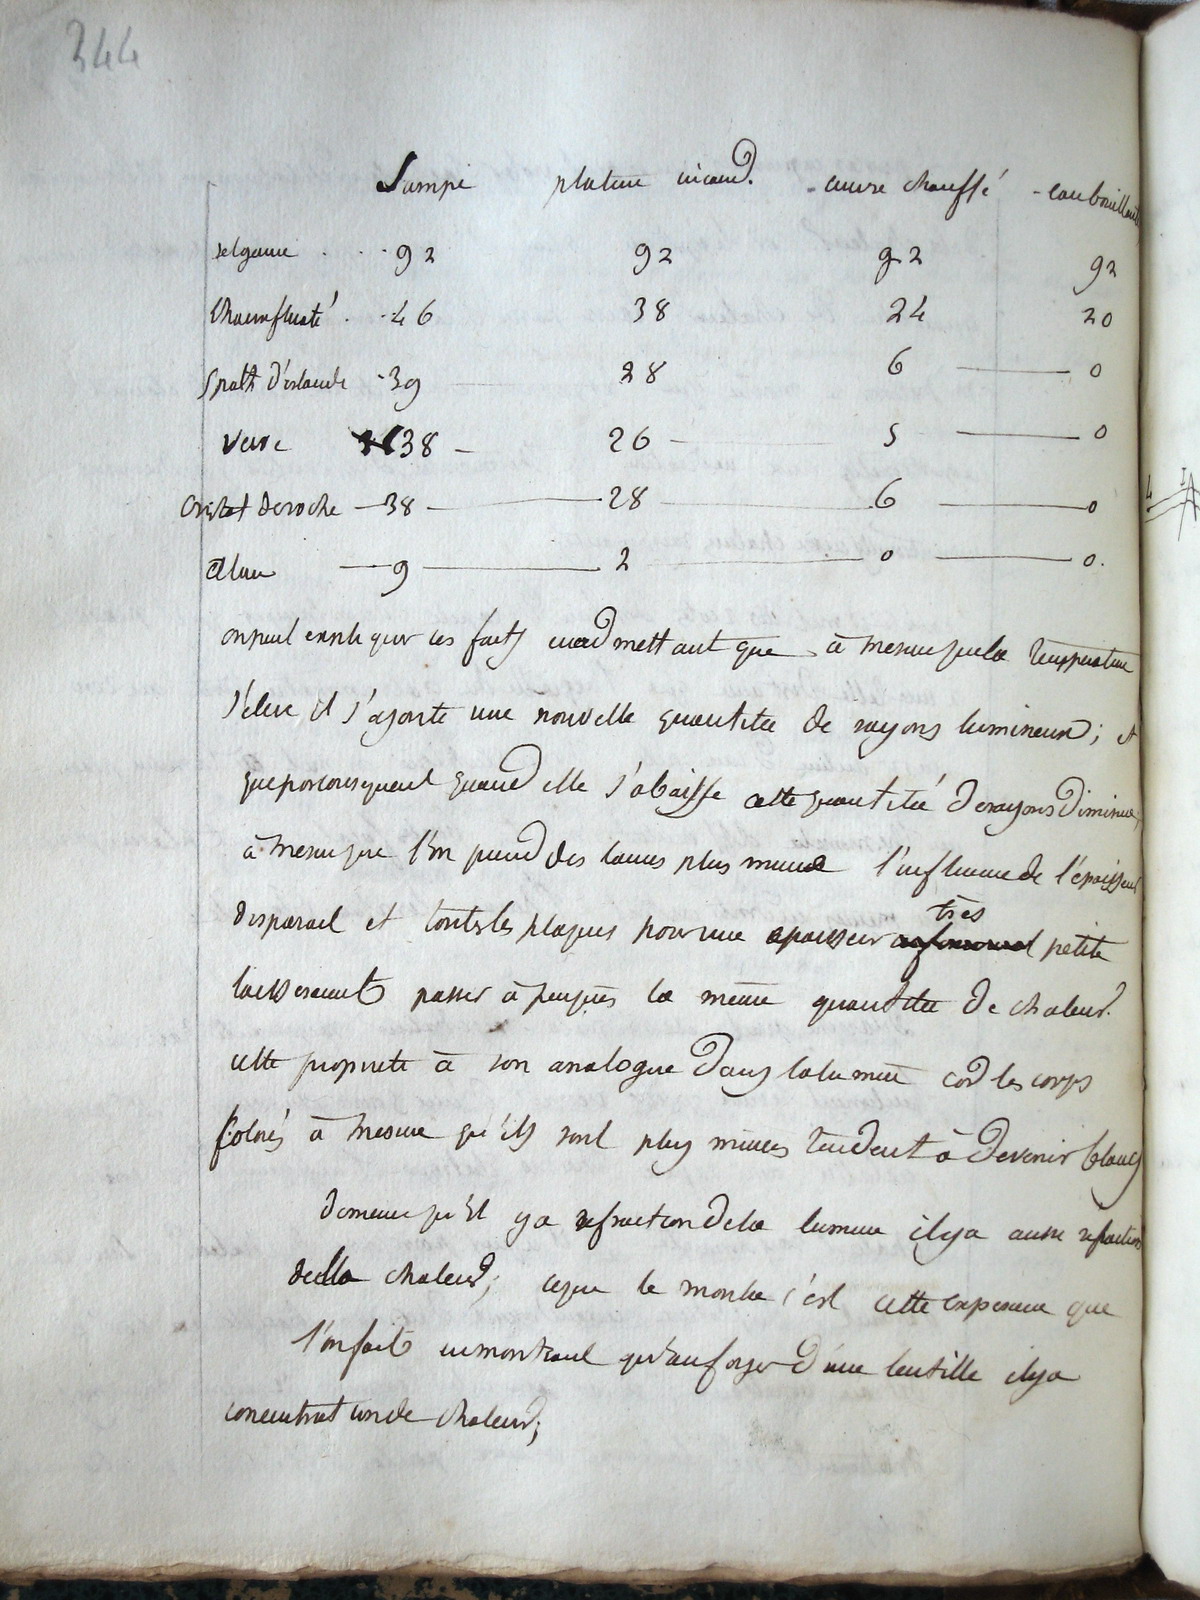 344
Lampe platine incand. cuivre chauffé eau bouillante
selgemme 92 92 92 92
Chaux fluaté 46 38 24 20
Spath d'islande 39 28 6 0
Verre 38 26 5 0
Cristal de roche 38 28 6 0
alun 9 2 0 0.
on peut expliquer ces faits en admettant que à mesure que la température
s'élève il s'ajoute une nouvelle quantitée de rayons lumineux; et
que par conséquent quand elle s'abaisse cette quantitée de rayons diminue;
à mesure que l'on prend des lames plus mince l'influence de l'épaisseur
disparait et toutes les plaques pour une epaisseur très petite
laisseraient passer à peu près la même quantitée de chaleur.
cette propriete à son analogue dans la lumière car les corps
colorés à mesure qu'ils sont plus minces tendent à devenir blancs
de meme qu'il y a refraction de la lumiere il y a aussi refraction
de la chaleur; ce que le montre c'est cette experience que
l'on fait en montrant qu'au foyer d'une lentille il y a
concentration de chaleur;